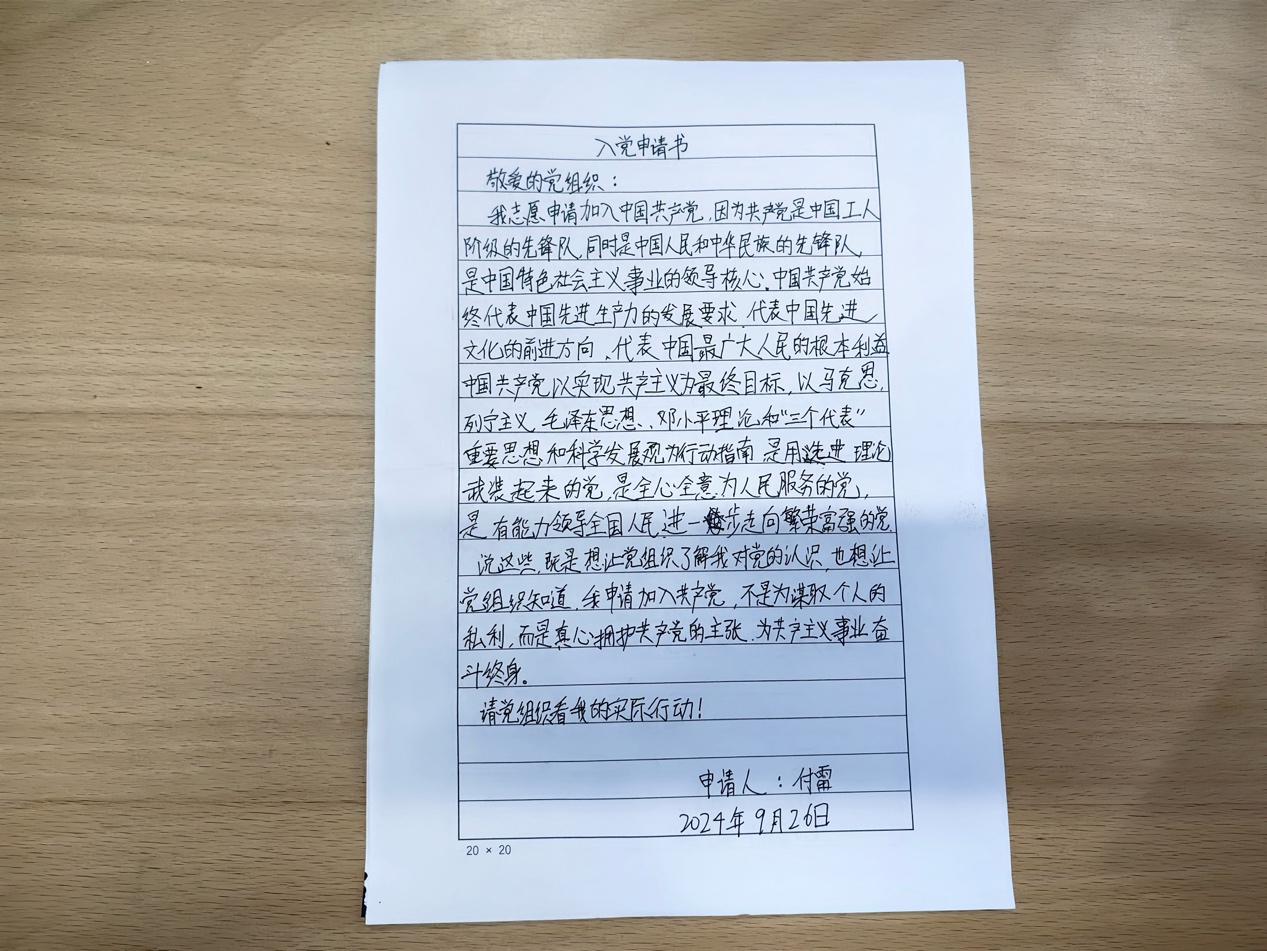 入党申请书
敬爱的党组织：
我志愿申请加入中国共产党，因为共产党是中国工人
阶级的先锋队，同时是中国人民和中华民族的先锋队，
是中国特色社会主义事业的领导核心。中国共产党始
终代表中国先进生产力的发展要求、代表中国先进
文化的前进方向、代表中国最广大人民的根本利益
中国共产党以实现共产主义为最终目标，以马克思，
列宁主义，毛泽东思想、邓小平理论和“三个代表”
重要思想和科学发展观为行动指南 是用先进理论
武装起来的党，是全心全意为人民服务的党，
是有能力领导全国人民进一步走向繁荣富强的党
说这些，既是想让党组织了解我对党的认识，也想让
党组织知道，我申请加入共产党，不是为谋取个人的
私利，而是真心拥护共产党的主张，为共产主义事业奋
斗终身。
请党组织看我的实际行动！
申请人：付雷
2024年9月26日
20 × 20